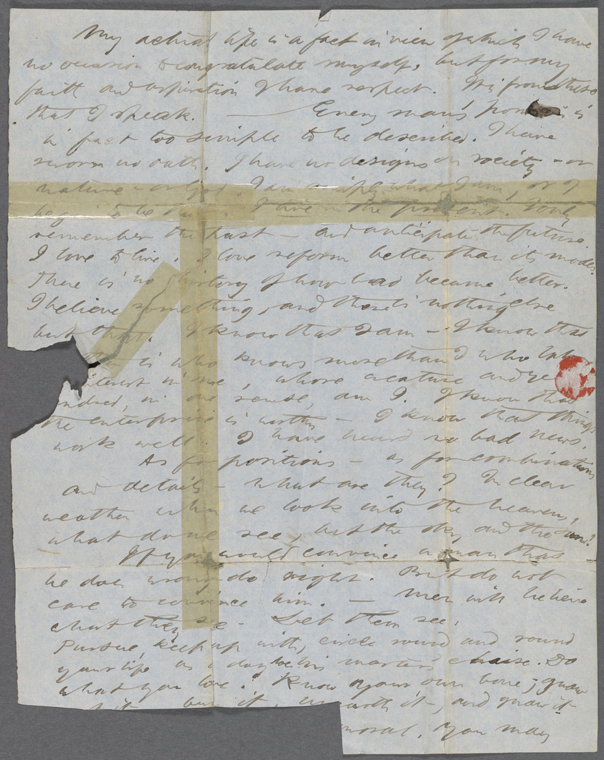 My actual life is a fact in view of which I have
no occasion to congratulate myself, but for my
faith and aspiration I have respect. It is from these
that I speak. — Every man's position is
in fact too simple to be described. I have
sworn no oath. I have no designs on society — or
nature — or God. I am simply what I am, or I
begin to be that. I live in the present. I only
remember the past — and anticipate the future.
I love to live. I love reform better than its modes.
There is no history of how bad became better.
I believe something, and there is nothing else
but that. I know that I am — I know that
is who knows more than I who takes
interest in me, whose creature and yet
kindred, in one sense, am I. I know that
the enterprise is worthy — I know that things
work well. I have heard no bad news.
As for positions — as for combinations
and details — what are they? In clear
weather when we look into the heavens,
what do we see, but the sky and the sun?
If you would convince a man that
he does wrong do right. But do not
care to convince him. — Men will believe
what they see. Let them see.
Pursue, keep up with, circle round and round
your life as a dog does his master's chaise. Do
what you love. Know your own bone; gnaw
at it, bury it, unearth it, and gnaw it
moral. You may